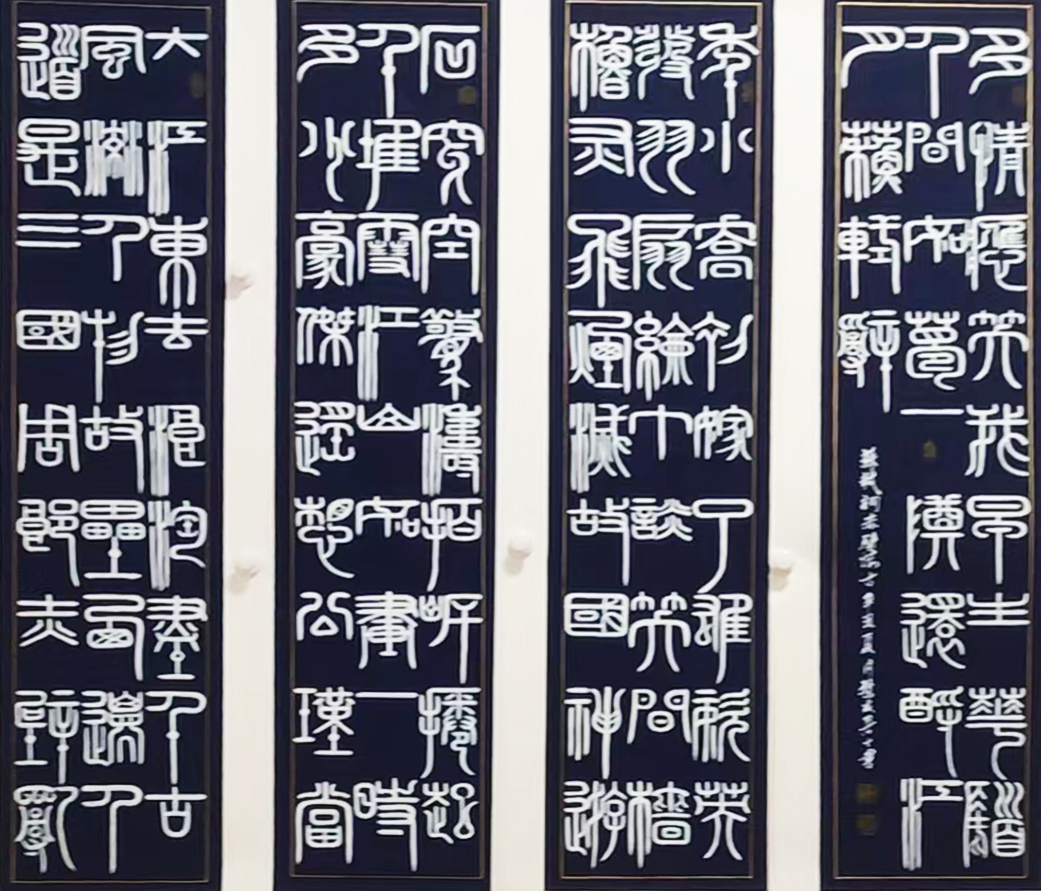 大江東去浪淘盡千古
風流人物故壘西邊人
道是三國周郎赤壁亂
石穿空驚濤拍岸捲起
千堆雪江山如畫一時
多少豪傑遙想公瑾當
年小喬初嫁了雄姿英
發羽扇綸巾談笑間檣
櫓灰飛煙滅故國神遊
多情應笑我早生華髮
人間如夢一樽還酹江
月蘇軾辭
蘇軾詞赤壁懷古辛丑夏月